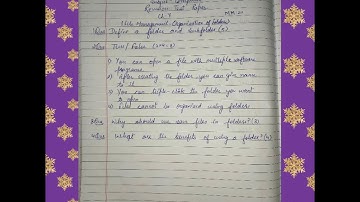 Subject - Computer
Revision Test Paper
Ch. 3
(File Management: Organisation of Folders)
MM-20
Define a folder and subfolder (2)
True/False
1) You can open a file with multiple software
programs
2) After creating the folder you can give name
to it
3) You can click the folder you want
to open
4) Files cannot be organised using folders
Why should we save files in folders? (3)
What are the benefits of using a folder? (4)